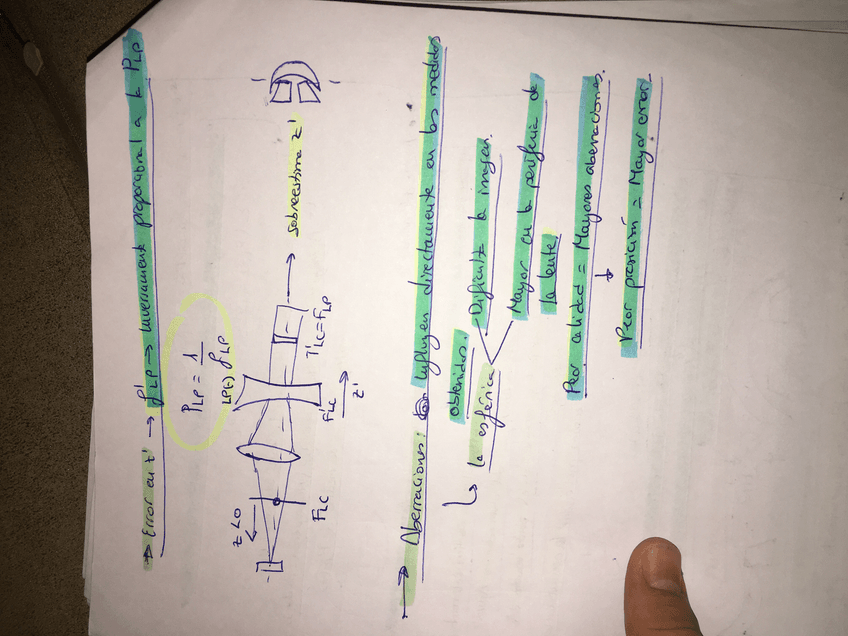 → Error en z' → f'LP → Inversamente proporcional a la PLP
PLP = 1 / f'LP
LP(-)
z<0
FLC
F'LC
z'
T'LC = FLP
sobreestima z'
→ Aberraciones: Influyen directamente en las medidas
obtenidas.
↳ la esférica
Dificulta la imagen.
Mayor en la periferia de
la lente.
Peor calidad = Mayores aberraciones.
↓
Peor precisión = Mayor error.